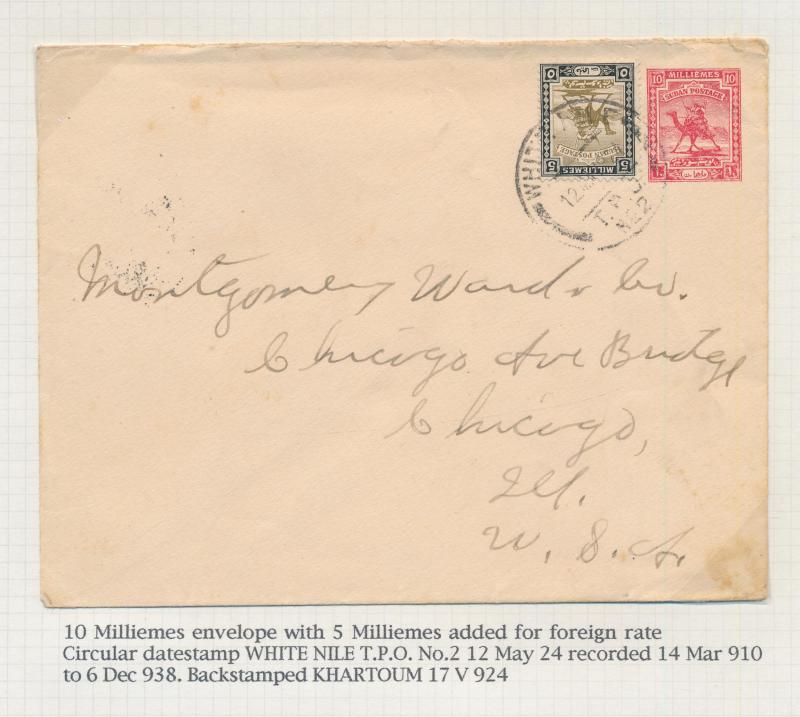 10 MILLIÈMES 10
SUDAN POSTAGE
5 5
SUDAN POSTAGE
5 MILLIEMES 5
WHIT
12
T.P.O.
No 2
Montgomery Ward & Co.
Chicago Ave Bridge
Chicago,
Ill.
U. S. A.
10 Milliemes envelope with 5 Milliemes added for foreign rate
Circular datestamp WHITE NILE T.P.O. No.2 12 May 24 recorded 14 Mar 910
to 6 Dec 938. Backstamped KHARTOUM 17 V 924